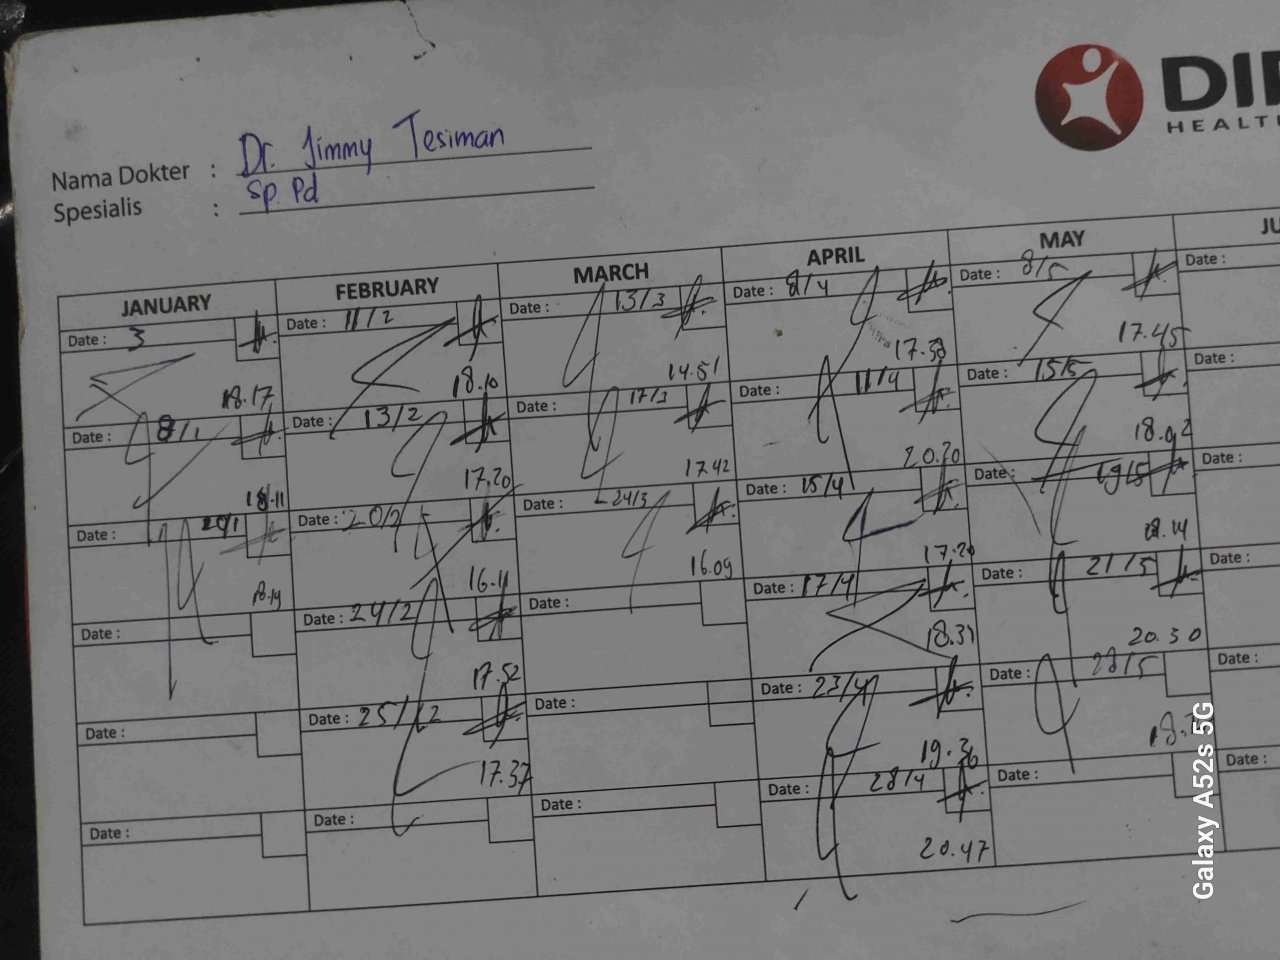 DIP
HEALTH
Nama Dokter : Dr. Jimmy Tesiman
Spesialis : Sp. Pd
JANUARY FEBRUARY MARCH APRIL MAY JU
Date : 3
18.17
Date : 8/1
18.11
Date :
18.19
Date :
Date :
Date :
Date : 11/2
18.10
Date : 13/2
17.20
Date : 20/2
16.11
Date : 24/2
17.52
Date : 25/2
17.37
Date :
Date : 13/3
14.51
Date : 17/3
17.42
Date : 24/3
16.09
Date :
Date :
Date :
Date : 8/4
17.58
Date : 11/4
20.20
Date : 15/4
17.20
Date : 17/4
18.31
Date : 23/4
19.36
Date : 28/4
20.47
Date : 8/5
17.45
Date : 15/5
18.02
Date : 19/5
18.14
Date : 21/5
20.30
Date : 28/5
Date :
Date :
Date :
Date :
Date :
Date :
Date :
Galaxy A52s 5G